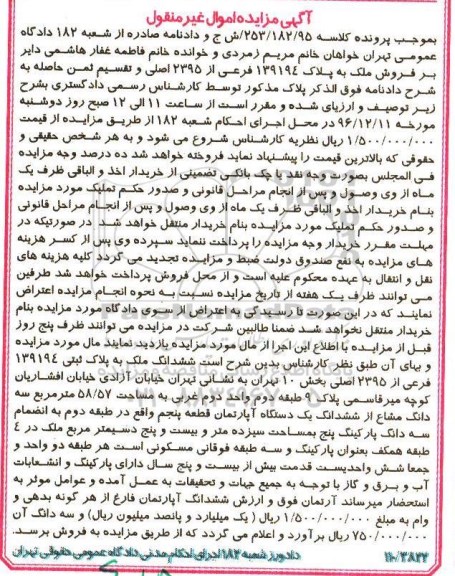 آگهی مزایده اموال غیر منقول
بموجب پرونده کلاسه ۲۵۳/۱۸۲/۹۵/ش ج و دادنامه صادره از شعبه ۱۸۲ دادگاه
عمومی تهران خواهان خانم مریم زمردی و خوانده خانم فاطمه غفار هاشمی دایر
بر فروش ملک به پلاک ۱۳۹۱۹۴ فرعی از ۲۳۹۵ اصلی و تقسیم ثمن حاصله به
شرح دادنامه فوق الذکر پلاک مذکور توسط کارشناس رسمی دادگستری بشرح
زیر توصیف و ارزیابی شده و مقرر است از ساعت ۱۱ الی ۱۲ صبح روز دوشنبه
مورخه ۹۶/۱۲/۱۱ در محل اجرای احکام شعبه ۱۸۲ از طریق مزایده از قیمت
۱/۵۰۰/۰۰۰/۰۰۰ ریال نظریه کارشناس شروع می شود و به هر شخص حقیقی و
حقوقی که بالاترین قیمت را پیشنهاد نماید فروخته خواهد شد ده درصد وجه مزایده
فی المجلس بصورت وجه نقد یا چک بانکی تضمینی از خریدار اخذ و الباقی ظرف یک
ماه از وی وصول و پس از انجام مراحل قانونی و صدور حکم تملیک مورد مزایده
بنام خریدار اخذ و الباقی ظرف یک ماه از وی وصول و پس از انجام مراحل قانونی
و صدور حکم تملیک مورد مزایده بنام خریدار منتقل خواهد شد در صورتیکه در
مهلت مقرر خریدار وجه مزایده را پرداخت ننماید سپرده وی پس از کسر هزینه
های مزایده به نفع صندوق دولت ضبط و مزایده تجدید می گردد کلیه هزینه های
نقل و انتقال به عهده محکوم علیه است و از محل فروش پرداخت خواهد شد طرفین
می توانند ظرف یک هفته از تاریخ مزایده نسبت به نحوه انجام مزایده اعتراض
نمایند که در این صورت تا رسیدگی به اعتراض از سوی دادگاه مورد مزایده بنام
خریدار منتقل نخواهد شد ضمنا طالبین شرکت در مزایده می توانند ظرف پنج روز
قبل از مزایده با اطلاع این اجرا از مال مورد مزایده بازدید نمایند مال مورد مزایده
و بهای آن طبق نظر کارشناس بدین شرح است ششدانگ ملک به پلاک ثبتی ۱۳۹۱۹۴
فرعی از ۲۳۹۵ اصلی بخش ۱۰ تهران به نشانی تهران خیابان آزادی خیابان افشاریان
کوچه میرقاسمی پلاک ۹ طبقه دوم واحد دوم غربی به مساحت ۵۸/۵۷ مترمربع سه
دانگ مشاع از ششدانگ یک دستگاه آپارتمان قطعه پنجم واقع در طبقه دوم به انضمام
سه دانگ پارکینگ پنج بمساحت سیزده متر و بیست و پنج دسیمتر مربع ملک در ۴
طبقه همکف بعنوان پارکینگ و سه طبقه فوقانی مسکونی است هر طبقه دو واحد و
جمعا شش واحدیست قدمت بیش از بیست و پنج سال دارای پارکینگ و انشعابات
آب و برق و گاز با توجه به جمیع جهات و تحقیقات به عمل آمده و عوامل موثر به
استحضار میرساند آپارتمان فوق و ارزش ششدانگ آپارتمان فارغ از هر گونه بدهی و
وام به مبلغ ۱/۵۰۰/۰۰۰/۰۰۰ ریال ( یک میلیارد و پانصد میلیون ریال) و سه دانگ آن
۷۵۰/۰۰۰/۰۰۰ ریال برآورد و اعلام می گردد که از طریق مزایده به فروش برسد.
۱۱۰/۳۸۲۲ دادورز شعبه ۱۸۲ اجرای احکام مدنی دادگاه عمومی حقوقی تهران